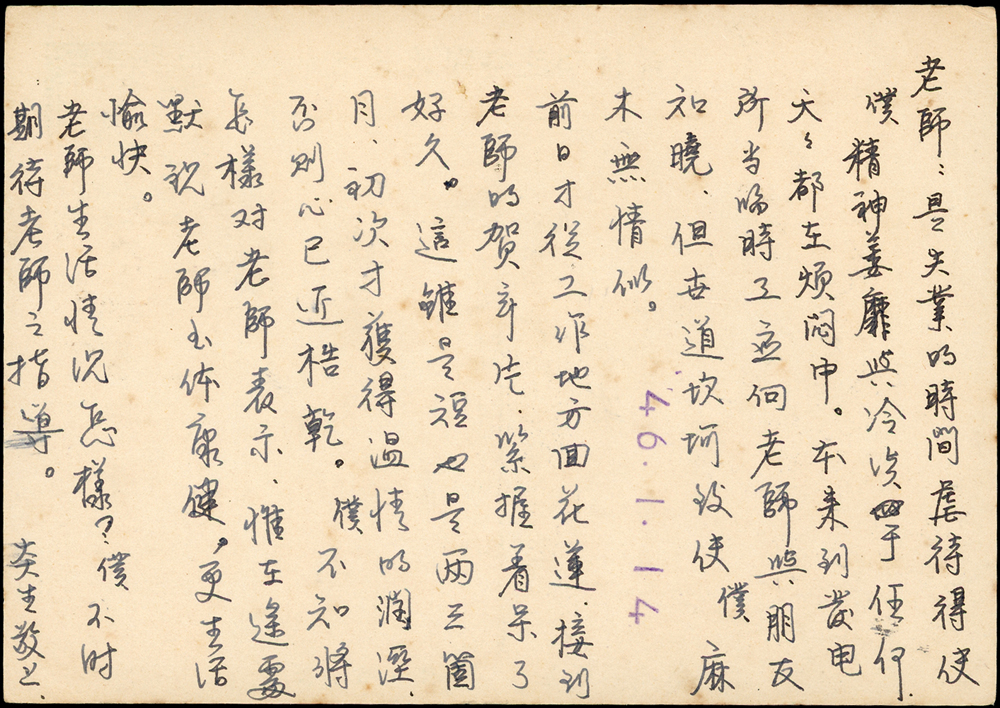 老師：是失業的時間虐待得使
僕精神萎靡與冷淡于任何
天々都在煩悶中。本來到發电
所当临時工应向老師與朋友
知曉、但世道坎坷致使僕麻
木無情似。
前日才從工作地方回花蓮、接到
老師的賀年片、緊握着呆了
好久。這雖是短也是兩三箇
月、初次才獲得溫情的潤溼、
否則心已近枯乾。僕不知將
怎樣对老師表示、惟在遠處
默祝老師玉体康健，更生活
愉快。
老師生活情況怎樣？僕不时
期待老師之指導。 炎生敬上
46.1.14